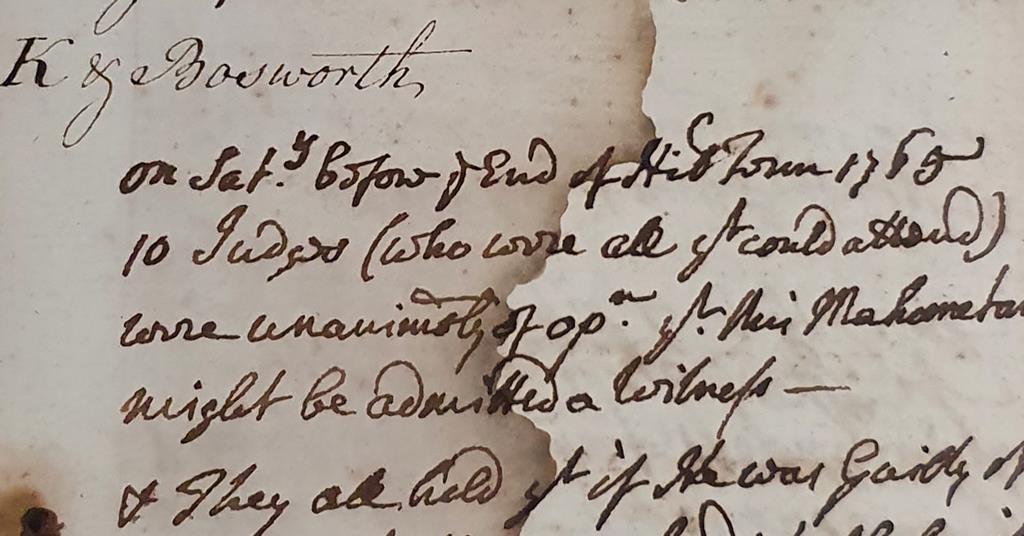 K & Bosworth
on Sat.y before ye End of Hil Term 1765
10 Judges (who were all yt could attend)
were unanimously of op.n yt this Mahometan
might be admitted a Witness —
& They all held yt if He was Guilty of